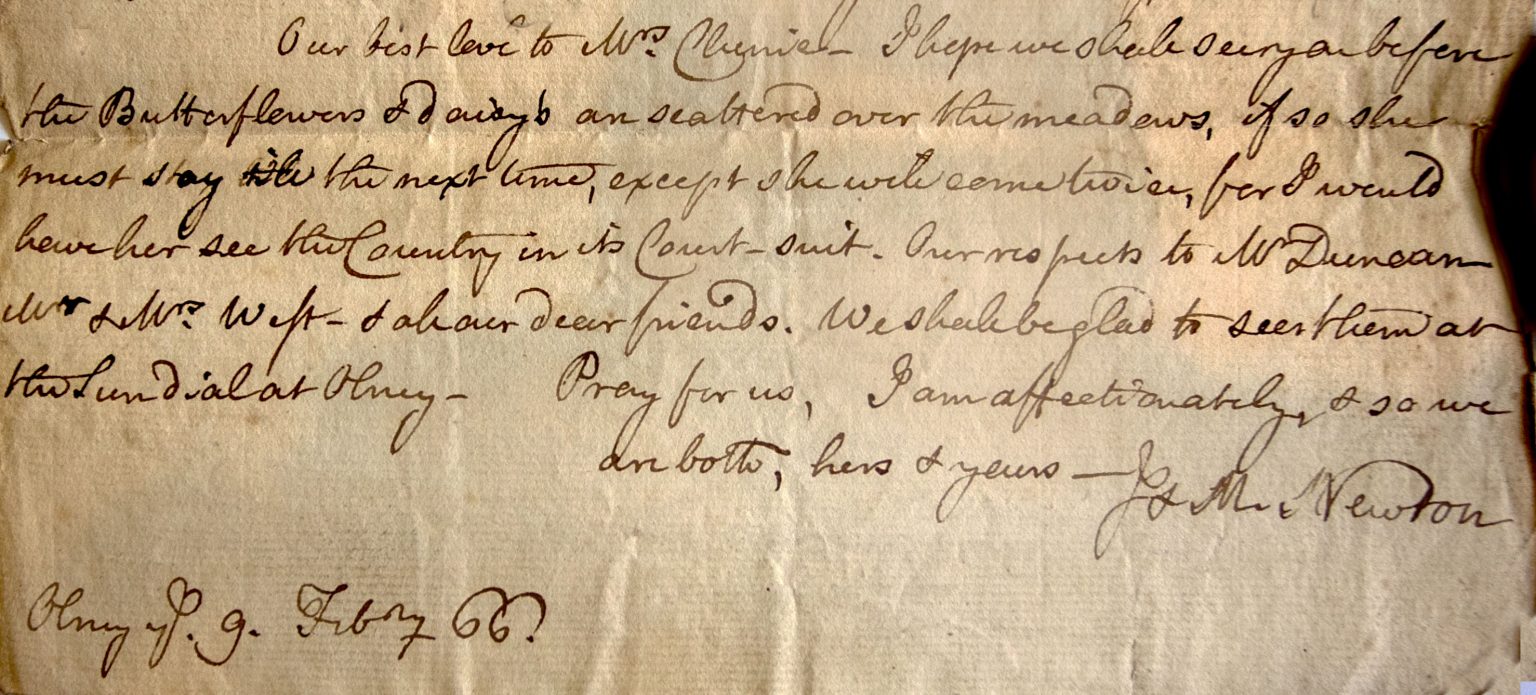 Our best love to Mrs. Clunie – I hope we shall see you before
the Butterflowers & daisy's are scattered over the meadows, if so she
must stay till the next time, except she will come twice, for I would
have her see the Country in its Court-suit. Our respects to Mr Duncan
Mr & Mrs. West – & all our dear friends. We shall be glad to see them at
the Sundial at Olney – Pray for us, I am affectionately, & so we
are both, hers & yours – J & M. Newton
Olney ye. 9. Febry 66.